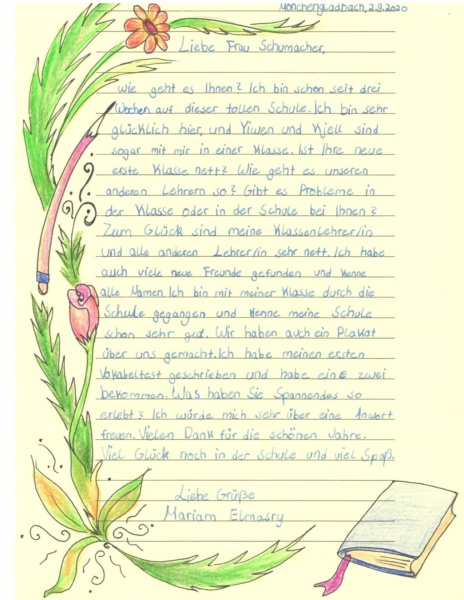 Mönchengladbach, 2.9.2020
Liebe Frau Schumacher,
wie geht es Ihnen? Ich bin schon seit drei
Wochen auf dieser tollen Schule. Ich bin sehr
glücklich hier, und Yiwen und Kjell sind
sogar mit mir in einer Klasse. Ist Ihre neue
erste Klasse nett? Wie geht es unseren
anderen Lehrern so? Gibt es Probleme in
der Klasse oder in der Schule bei Ihnen?
Zum Glück sind meine Klassenlehrer/in
und alle anderen Lehrer/in sehr nett. Ich habe
auch viele neue Freunde gefunden und kenne
alle Namen. Ich bin mit meiner Klasse durch die
Schule gegangen und kenne meine Schule
schon sehr gut. Wir haben auch ein Plakat
über uns gemacht. Ich habe meinen ersten
Vokabeltest geschrieben und habe eine zwei
bekommen. Was haben Sie Spannendes so
erlebt? Ich würde mich sehr über eine Antwort
freuen. Vielen Dank für die schönen Jahre.
Viel Glück noch in der Schule und viel Spaß.
Liebe Grüße
Mariam Elmasry